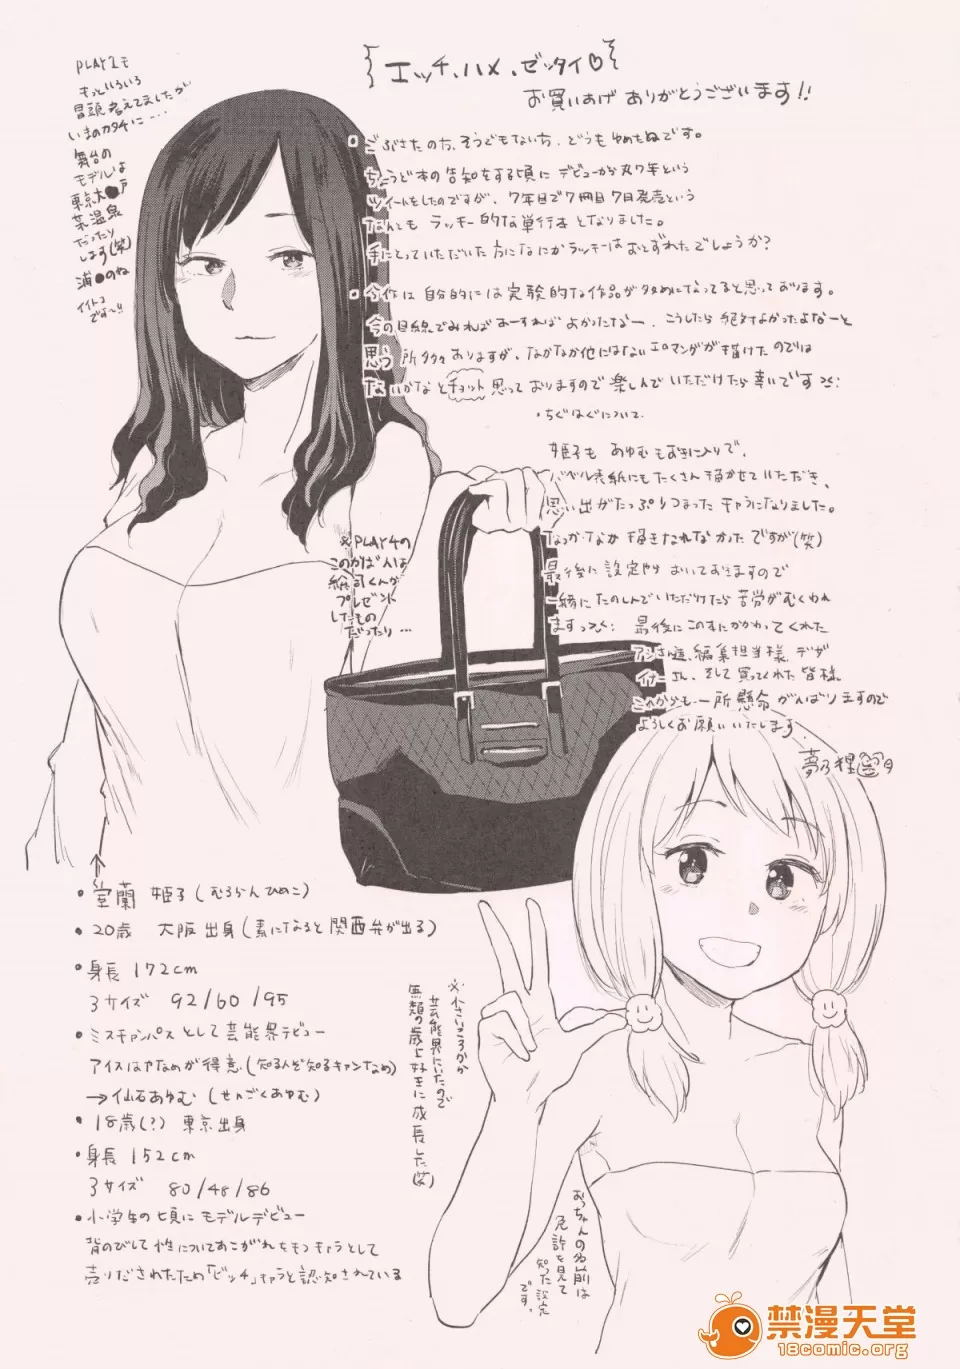 エッチ、ハメ、ゼッタイ♡
お買いあげ ありがとうございます!!
PLAY1も
もっといろいろ
冒頭考えてましたが
いまのカタチに…
舞台の
モデルは
東京大●戸
菜温泉
だったり
します(笑)
浦●のね
イイトコ
です〜!!
ごぶさたの方、そうでもない方、どうも ゆめたぬです。
ちょうど本の告知をする頃に デビューから丸7年という
ツイートをしたのですが、7年目で7冊目 7月発売という
なんとも ラッキー的な単行本となりました。
手にとっていただいた方になにかラッキーはおとずれたでしょうか?
今作は自分的には実験的な作品が多めになってると思っております。
今の目線でみればあーすれば よかったなー、こうしたら絶対よかったよなーと
思う所多々ありますが、なかなか他にはないエロマンガが描けたのでは
ないかなとチョット思っておりますので楽しんでいただけたら幸いです
・ちぐはぐについて
姫子も あゆむもお気に入りで、
バベル表紙にもたくさん描かせていただき、
思い出がたっぷりつまったキャラになりました。
なっかなか描きなれなかったですが(笑)
最後に設定やら おいておきますので
一緒にたのしんでいただけたら苦労がむくわれ
ます 最後にこの本にかかわってくれた
アシさん達、編集担当様、デザ
イナーさん、そして買ってくれた皆様
これからも一所懸命がんばりますので
よろしくお願いいたします
夢乃狸
※PLAY4の
このかばんは
総司くんが
プレゼント
したもの
だったり…
・室蘭 姫子(むろらんひめこ)
・20歳 大阪出身(素になると関西弁が出る)
・身長172cm
3サイズ 92/60/95
・ミスキャンパスとして芸能界デビュー
アイスはやなめが得意(知る人ぞ知るキャンなめ)
おっちゃんの名前は
免許を見て
知った設定
です。
禁漫天堂
18comic.org